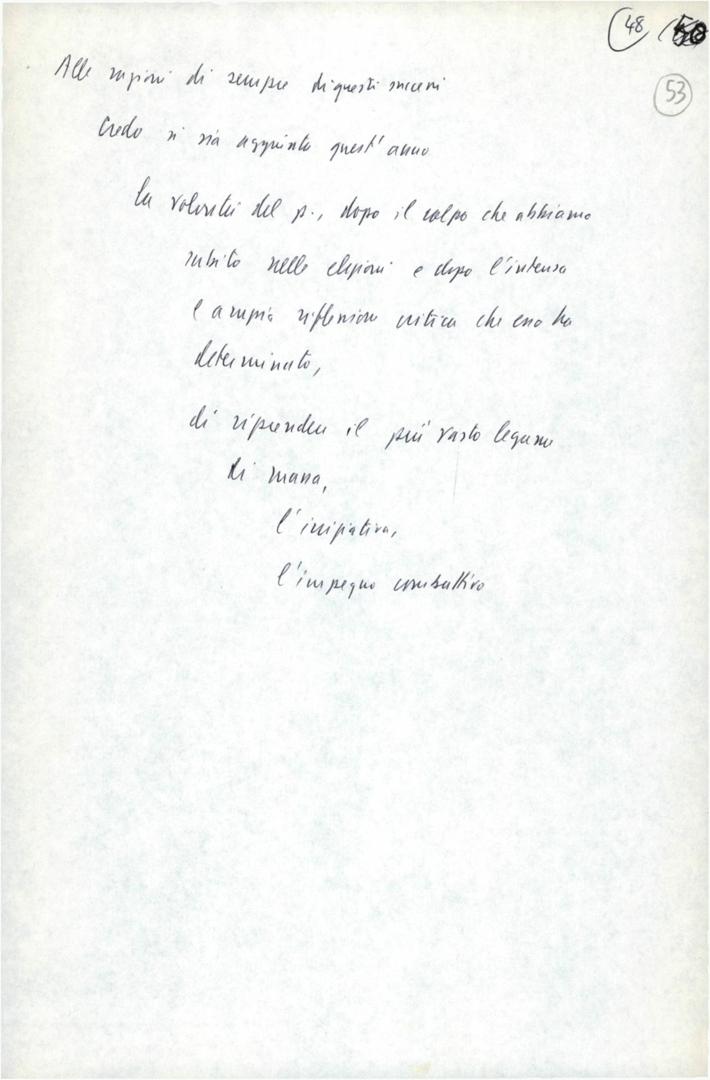 48
53
Alle ragioni di sempre di questi successi
Credo si sia aggiunta quest'anno
la volontà del p., dopo il colpo che abbiamo
subito nelle elezioni e dopo l'intensa
e ampia riflessione critica che esso ha
determinato,
di riprendere il più vasto legame
di massa,
l'iniziativa,
l'impegno combattivo